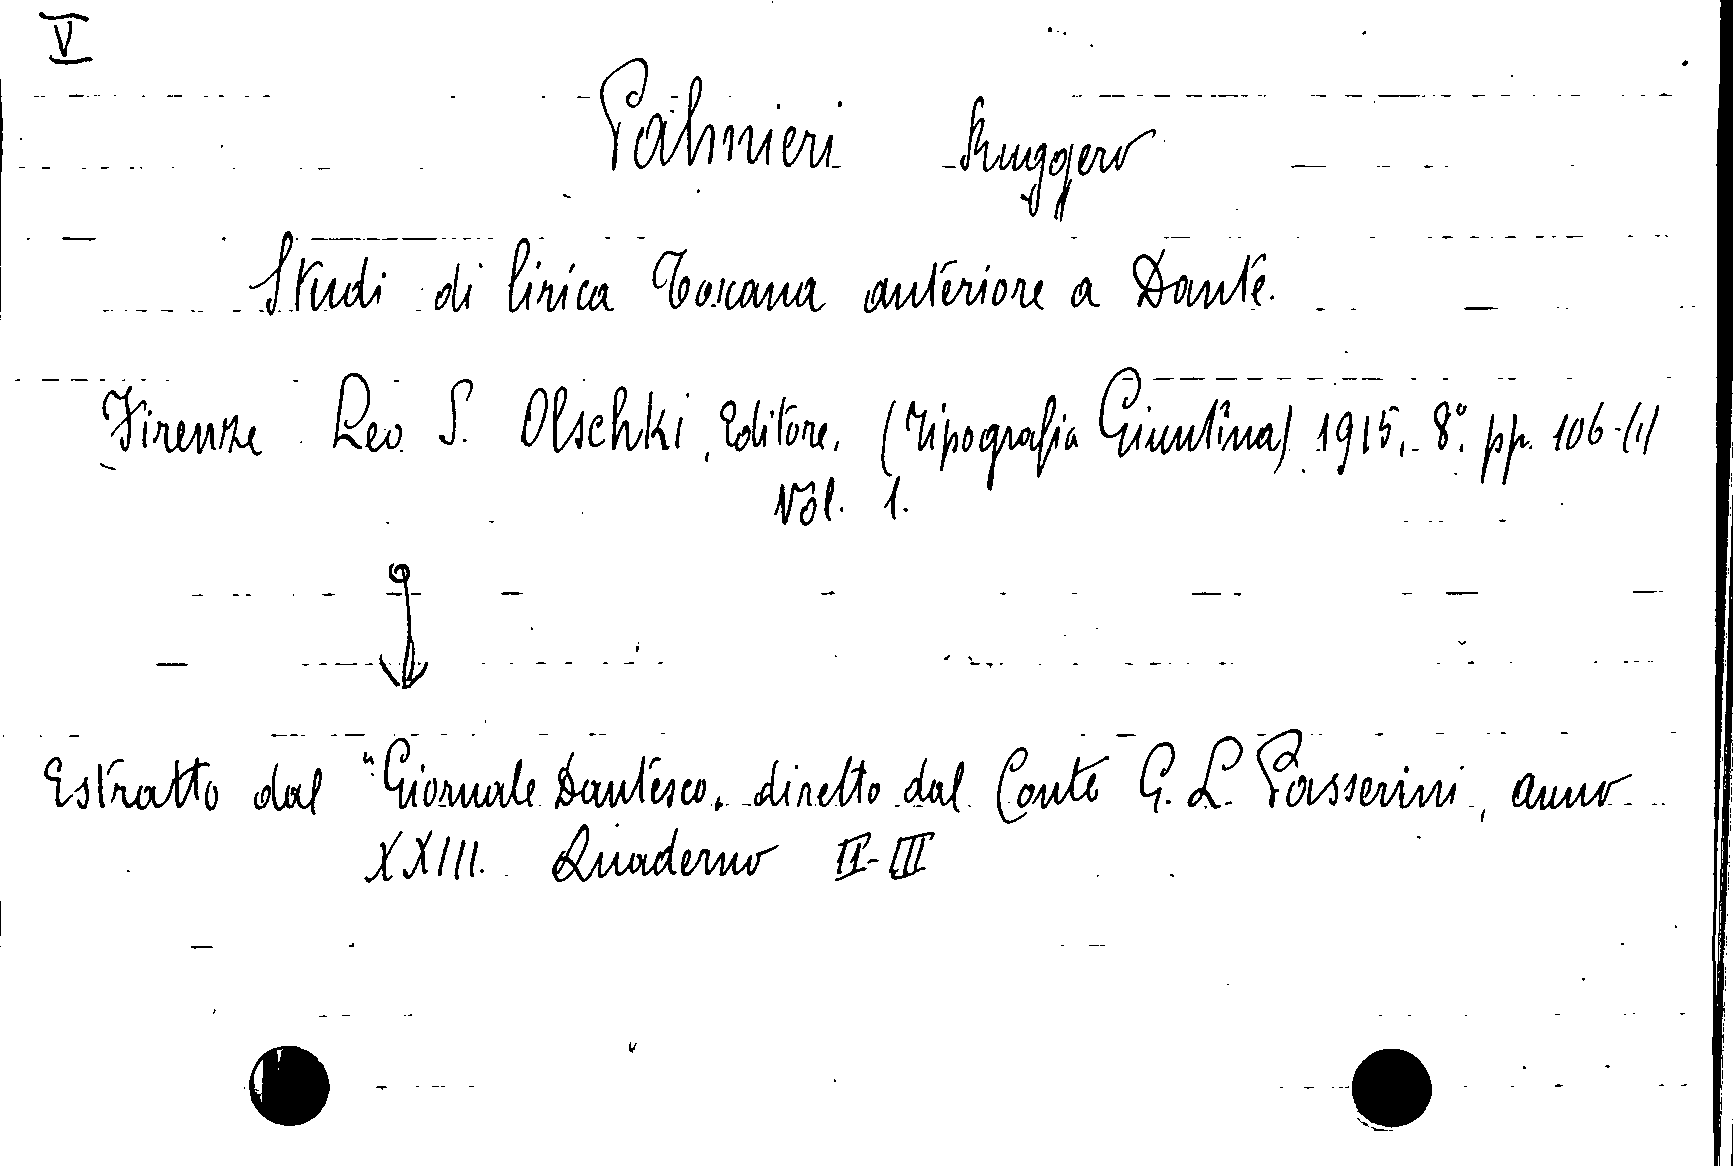 V
Palmieri Ruggero
Studi di lirica Toscana anteriore a Dante.
Firenze Leo S. Olschki, Editore. (Tipografia Giuntina) 1915. 8° pp. 106-(1)
Vol. 1.
Estratto dal "Giornale Dantesco. diretto dal Conte G. L. Passerini, anno
XXIII. Quaderno II-III